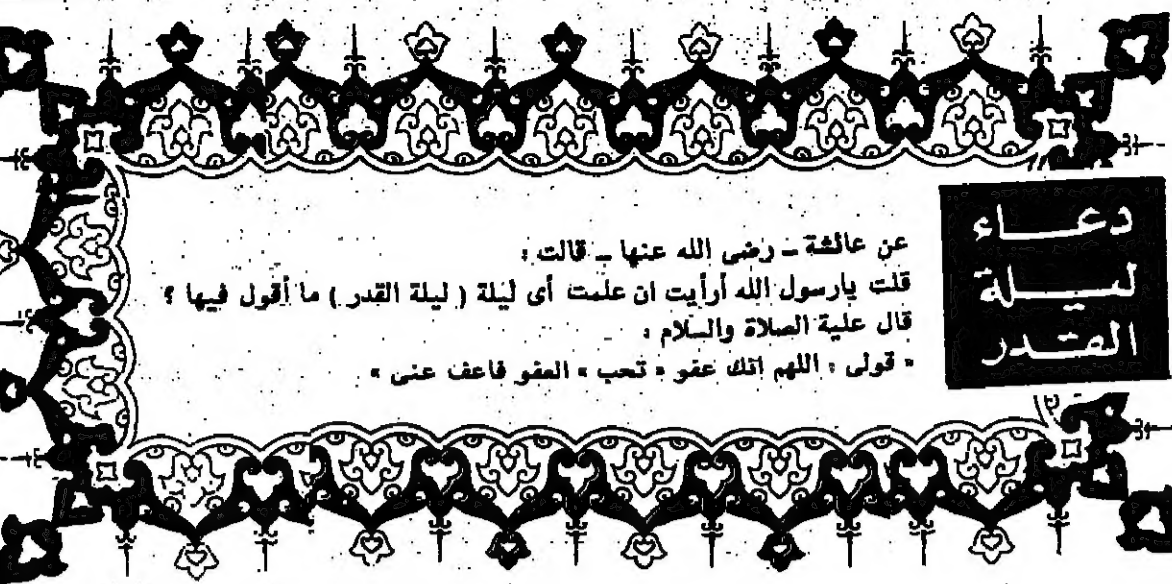 دعاء
ليلة
القدر
عن عائشة ــ رضى الله عنها ــ قالت :
قلت يارسول الله أرأيت ان علمت أى ليلة ( ليلة القدر ) ما أقول فيها ؟
قال علية الصلاة والسلام :
« قولى : اللهم انك عفو « تحب » العفو فاعف عنى »